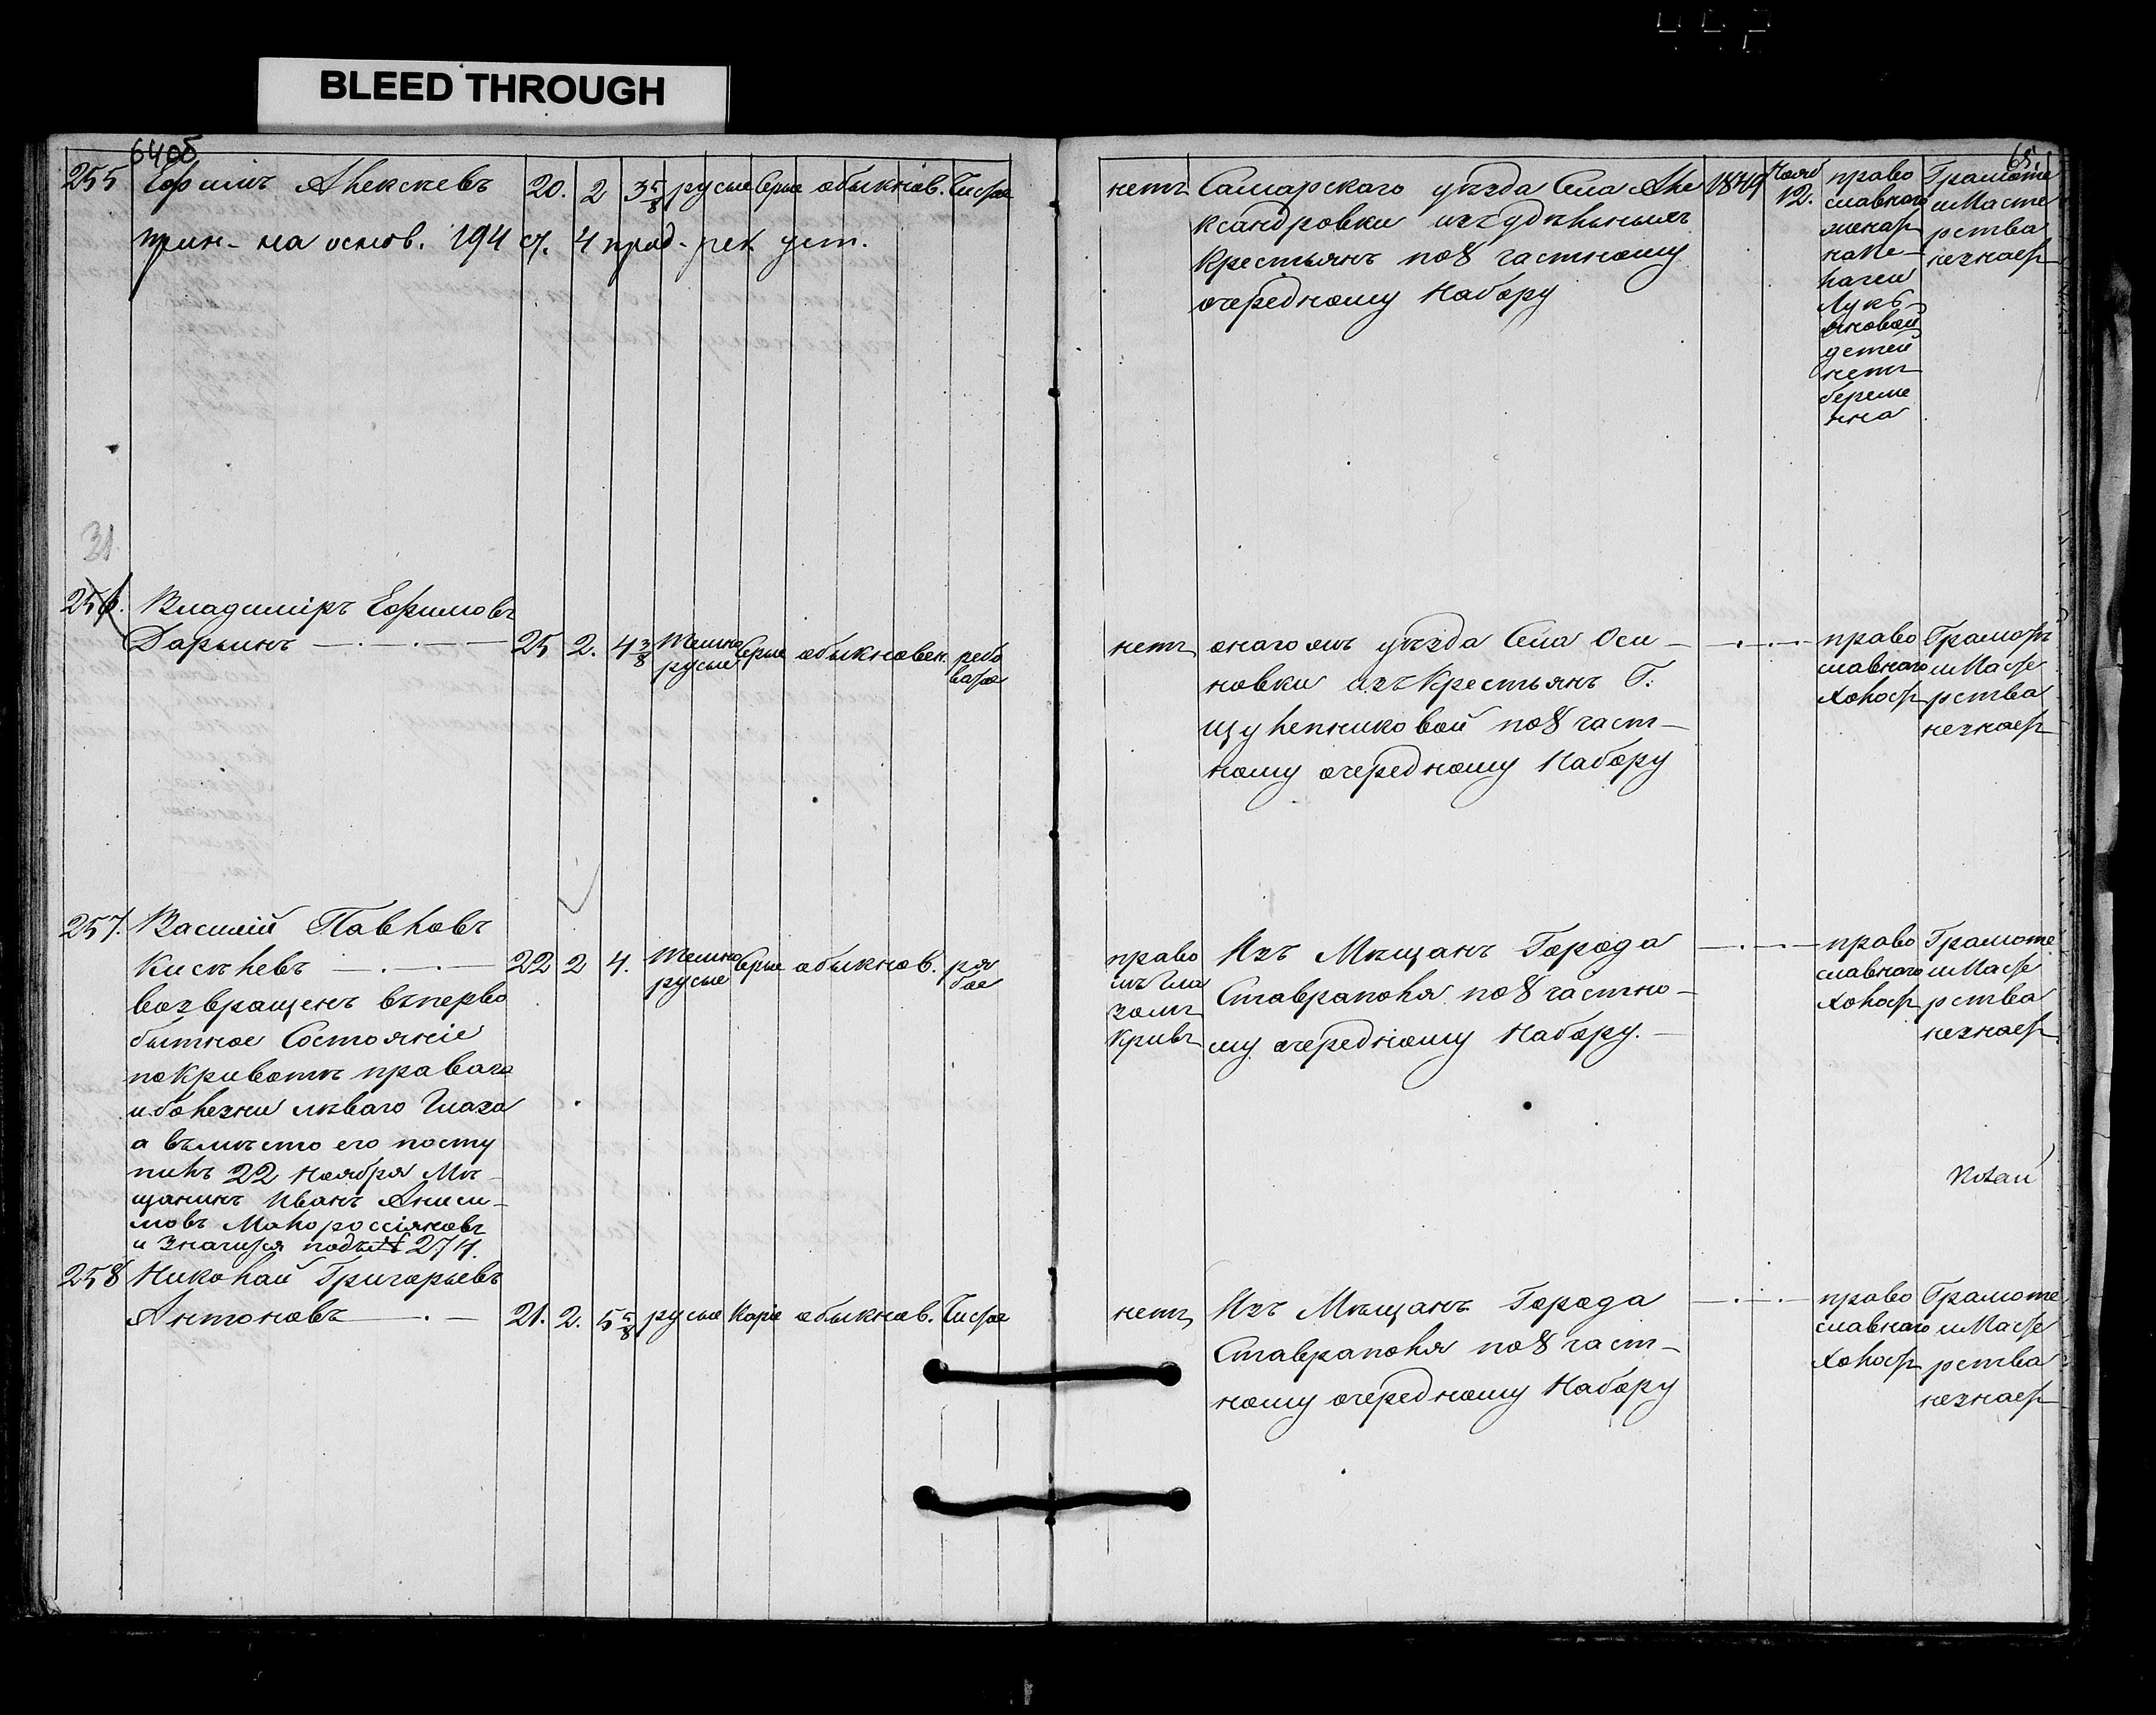 BLEED THROUGH
64об
255 Ефимъ Алексеевъ 20. 2 3 5/8 русые Серые обыкнов. Чистое
прин- на основ. 194 ст. 4 прод. рек. уст.
31
256. Владиміръ Ефимовъ
Дарьинъ 25 2. 4 3/8 темно русые Серые обыкновен. ребо ватое
257. Василій Павловъ
Кисѣлевъ 22 2 4. темно русые Серые обыкнов. ря бое
возвращенъ въперво
бытное Состояніе
покривотѣ праваго
иболезни лѣваго Глаза
а вьмѣсто его посту
пилъ 22 Ноября Мѣ-
щанинъ Иванъ Аниси-
мовъ Малороссіяновъ
и Значится подъ№ 274.
258 Николай Григорьевъ
Антоновъ 21. 2. 5 5/8 русые Каріе обыкнов. Чистое
65.
нетъ Самарскаго уѣзда Села Але
ксандровки изъудѣльныхъ
Крестьянъ по8 частному
очередному Набору
1849 Нояб 12.
право
славнаго
женат
наПе-
лагеи
Лукь-
яновой
детей
нетъ
береме
нна
Грамоте
иМасте
рства
незнает
нетъ онагожъ уѣзда Села Оси-
новки изъКрестьянъ Г.
Щулепниковой по8 част-
ному очередному Набору
право
славнаго
Холост
Грамотѣ
иМасте
рства
незнает
право
мъ Гла
зомъ
Кривъ
Изъ Мѣщанъ Города
Ставраполя по8 частно-
му очередному Набору.
право
славнаго
Холост
Грамоте
иМасте
рства
незнает
нетъ Изъ Мѣщанъ Города
Ставраполя по8 част-
ному очередному Набору
право
славнаго
Холост
Грамоте
иМасте
рства
незнает